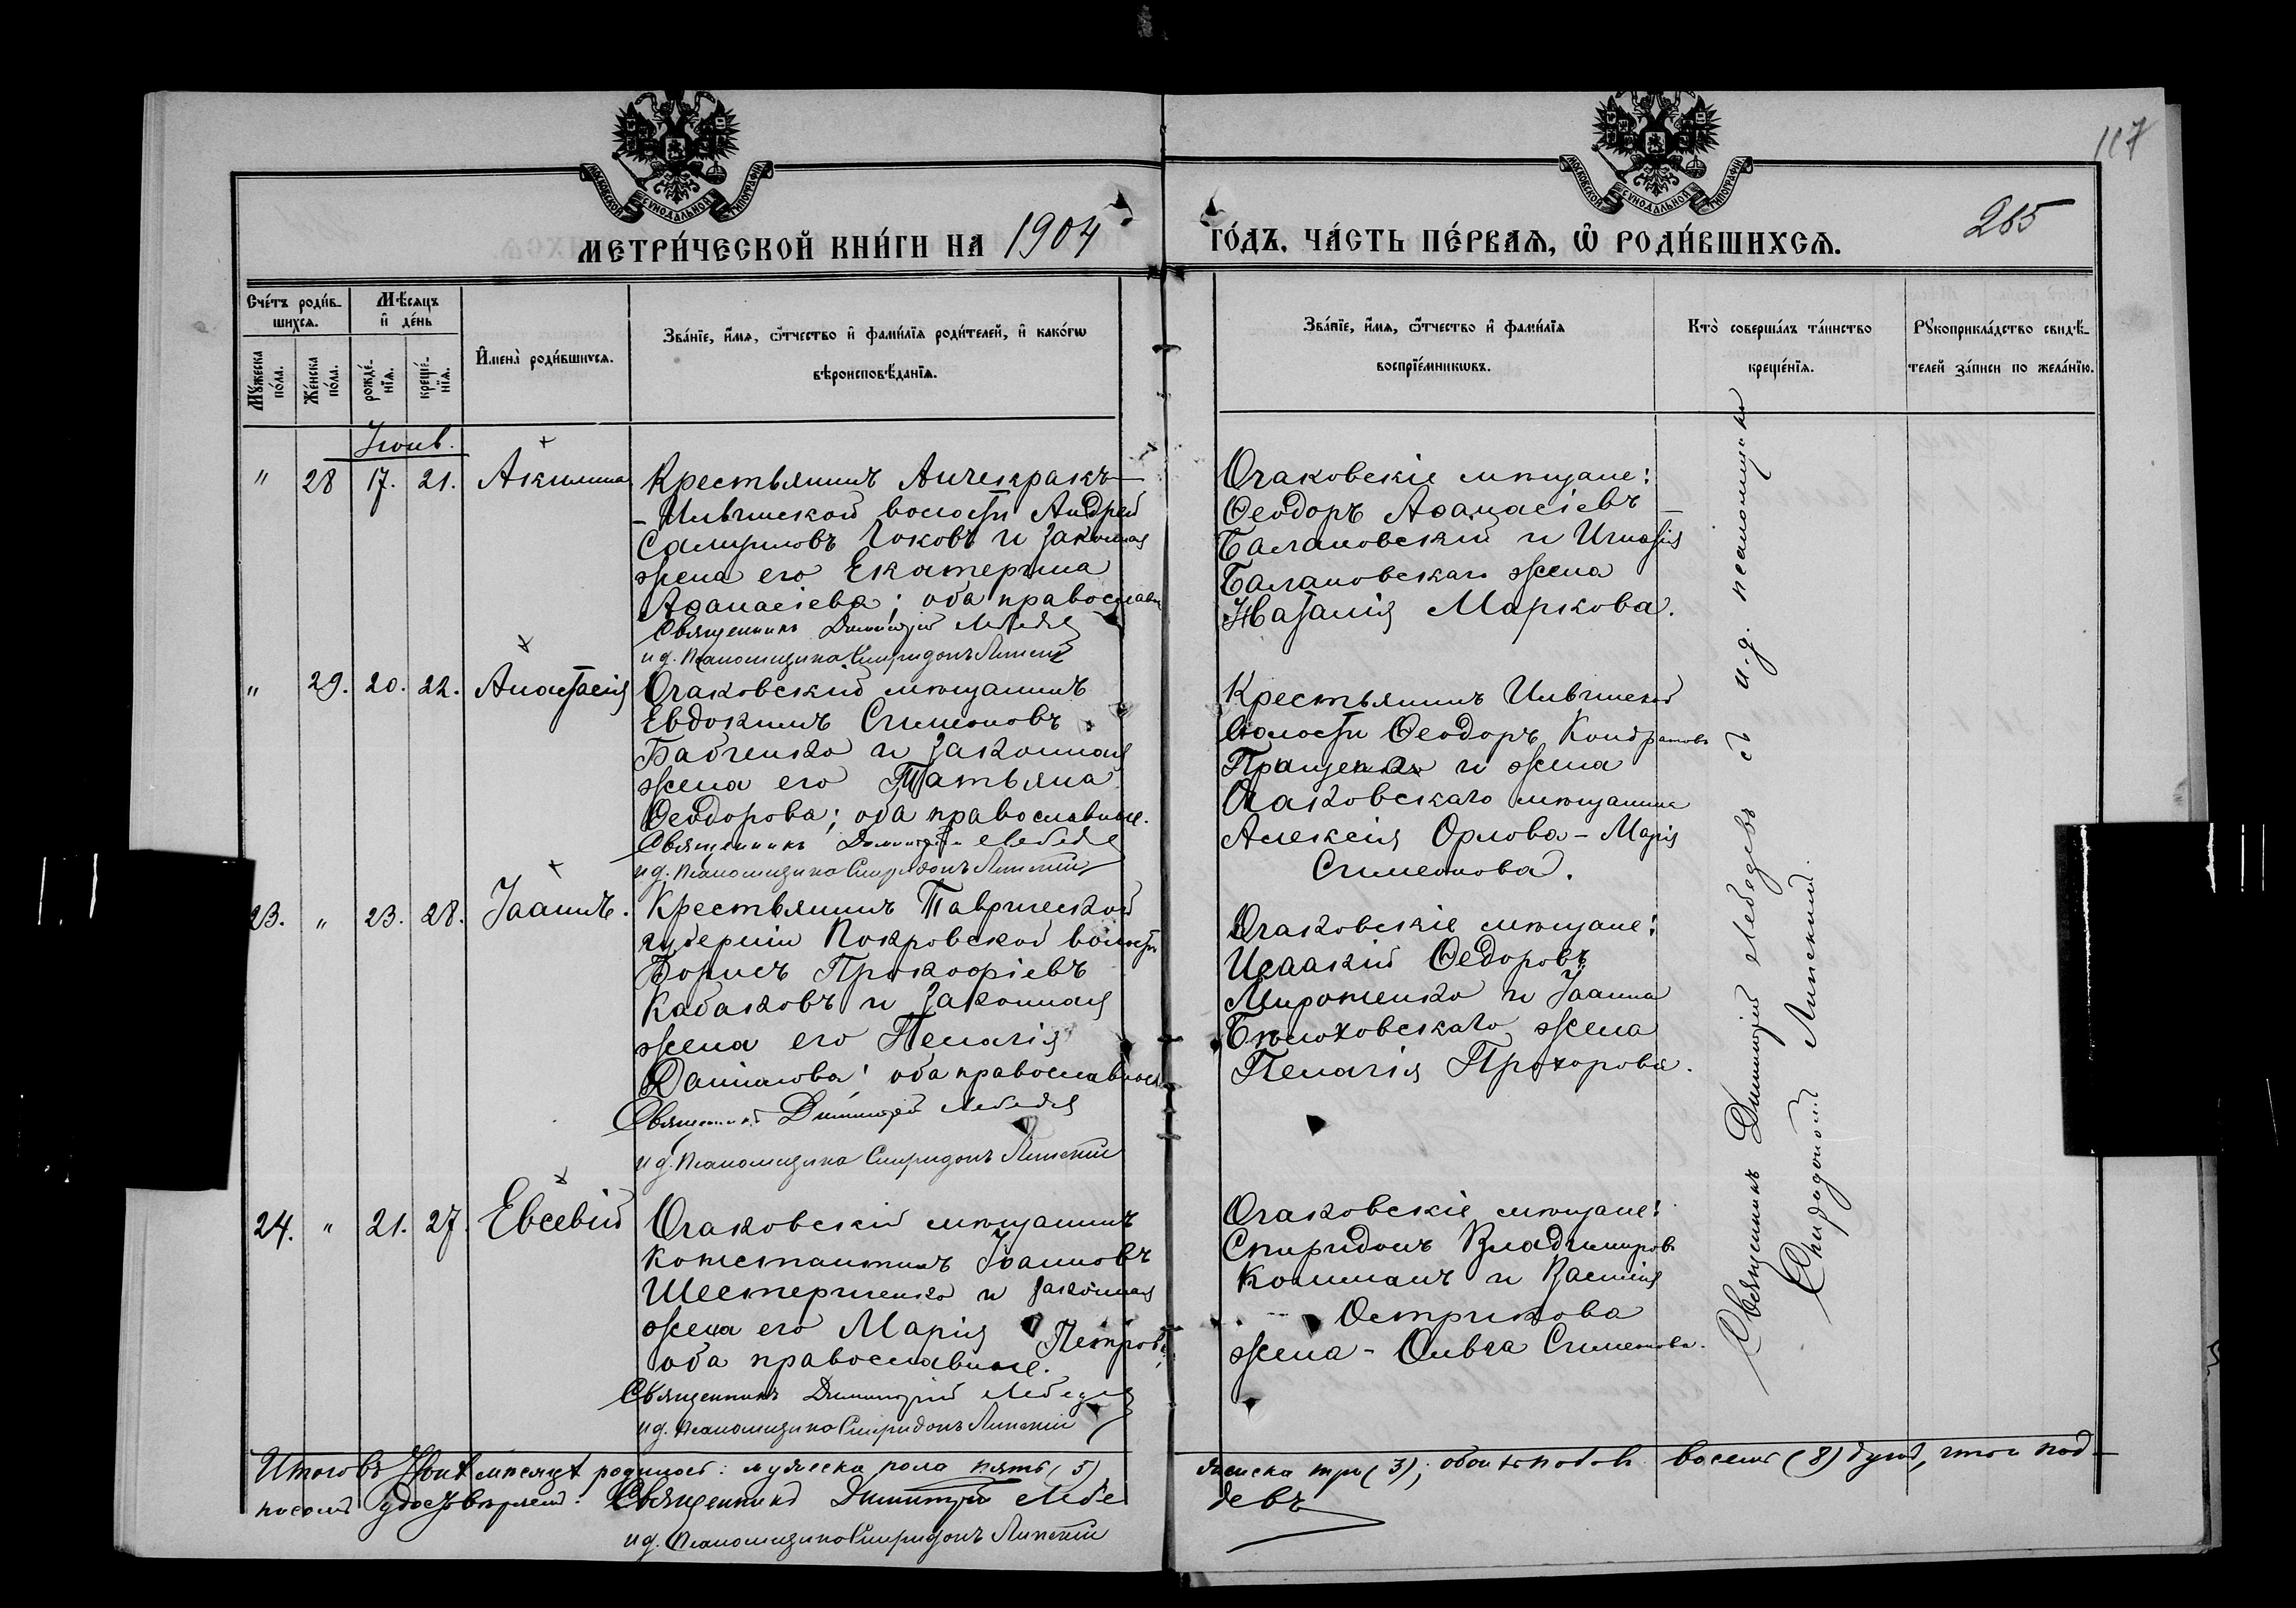 117
265
МОСКОВСКОЙ СѴНОДАЛЬНОЙ ТИПОГРАФІИ
МОСКОВСКОЙ СѴНОДАЛЬНОЙ ТИПОГРАФІИ
МЕТРИ́ЧЕСКОЙ КНИ́ГИ НА 1904
ГО́ДЪ, ЧА́СТЬ ПЕ́РВАЯ, Ѡ РОДИ́ВШИХСЯ.
Сче́тъ роди́в-
шихся.
Мѣ́сяцъ
и де́нь
Мꙋ́жеска
по́ла.
Же́нска
по́ла.
рожде́-
нїя.
креще́-
нїя.
Имена̀ роди́вшихся.
Зва́нїе, и́мя, ѻ́тчество и фами́лїя роди́телей, и како́гѡ
вѣроисповѣ́данїя.
Зва́нїе, и́мя, ѻ́тчество и фами́лїя
воспрїе́мникѡвъ.
Кто̀ соверша́лъ та́инство
креще́нїя.
Рꙋкоприкла́дство свидѣ́-
телей за́писи по жела́нїю.
Іюнь.
" 28 17. 21. Акилина
Крестьянинъ Анчекракъ-
-Ильинской волости Андрей
Самуиловъ Чоковъ и законная
жена его Екатерина
Аѳанасіева; оба православн
Священникъ Димитрій Лебедев
и д. псаломщика Спиридонъ Липскій
Очаковскіе мѣщане:
Ѳеодоръ Аѳанасіевъ
Балановскій и Игнатія
Балановскаго жена
Наталія Маркова.
" 29. 20. 22. Анастасія
Очаковскій мѣщанинъ
Евдокимъ Симеоновъ
Бабченко и законная
жена его Татьяна
Ѳеодорова; оба православные.
Священникъ Димитрій Лебедев
и д. псаломщика Спиридонъ Липскій
Крестьянинъ Ильинской
волости Ѳеодоръ Кондратовъ
Пращенко и жена
Очаковскаго мѣщанина
Алексія Орлова - Марія
Симеонова.
23. " 23. 28. Іоаннъ.
Крестьянинъ Таврической
губерніи Покровской волости
Борисъ Прокофіевъ
Кабаковъ и законная
жена его Пелагія
Даніилова; оба православные
Священникъ Димитрій Лебедев
и д. псаломщика Спиридонъ Липскій
Очаковскіе мѣщане:
Исаакій Ѳедоровъ
Мироненко и Іоанна
Бѣлоховскаго жена
Пелагія Прохорова.
24. " 21. 27. Евсевій
Очаковскій мѣщанинъ
Константинъ Іоанновъ
Шестериненко и законная
жена его Марія Петрова
оба православные.
Священникъ Димитрій Лебедев
и д. псаломщика Спиридонъ Липскій
Очаковскіе мѣщане:
Спиридонъ Владимировъ
Колтманъ и Василія
Острикова
жена - Ольга Симеонова.
Священникъ Димитрій Лебедевъ съ и. д. псаломщика
Спиридономъ Липскимъ.
Итого въ Іюнѣ мѣсяцѣ родилось: мужеска пола пять (5),
женска три (3); обоихъ половъ восемь (8) душъ, что и под-
писомъ удостовѣряемъ: Священникъ Димитрій Лебе
девъ
и д. псаломщика Спиридонъ Липскій